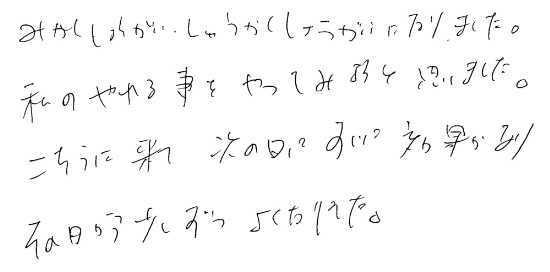 みかくしょうがい、しゅうかくしょうがいになりました。
私のやれる事をやってみようと思いました。
こちらに来て 次の日に 効果がみ
その日から少しずつ よくなりました。